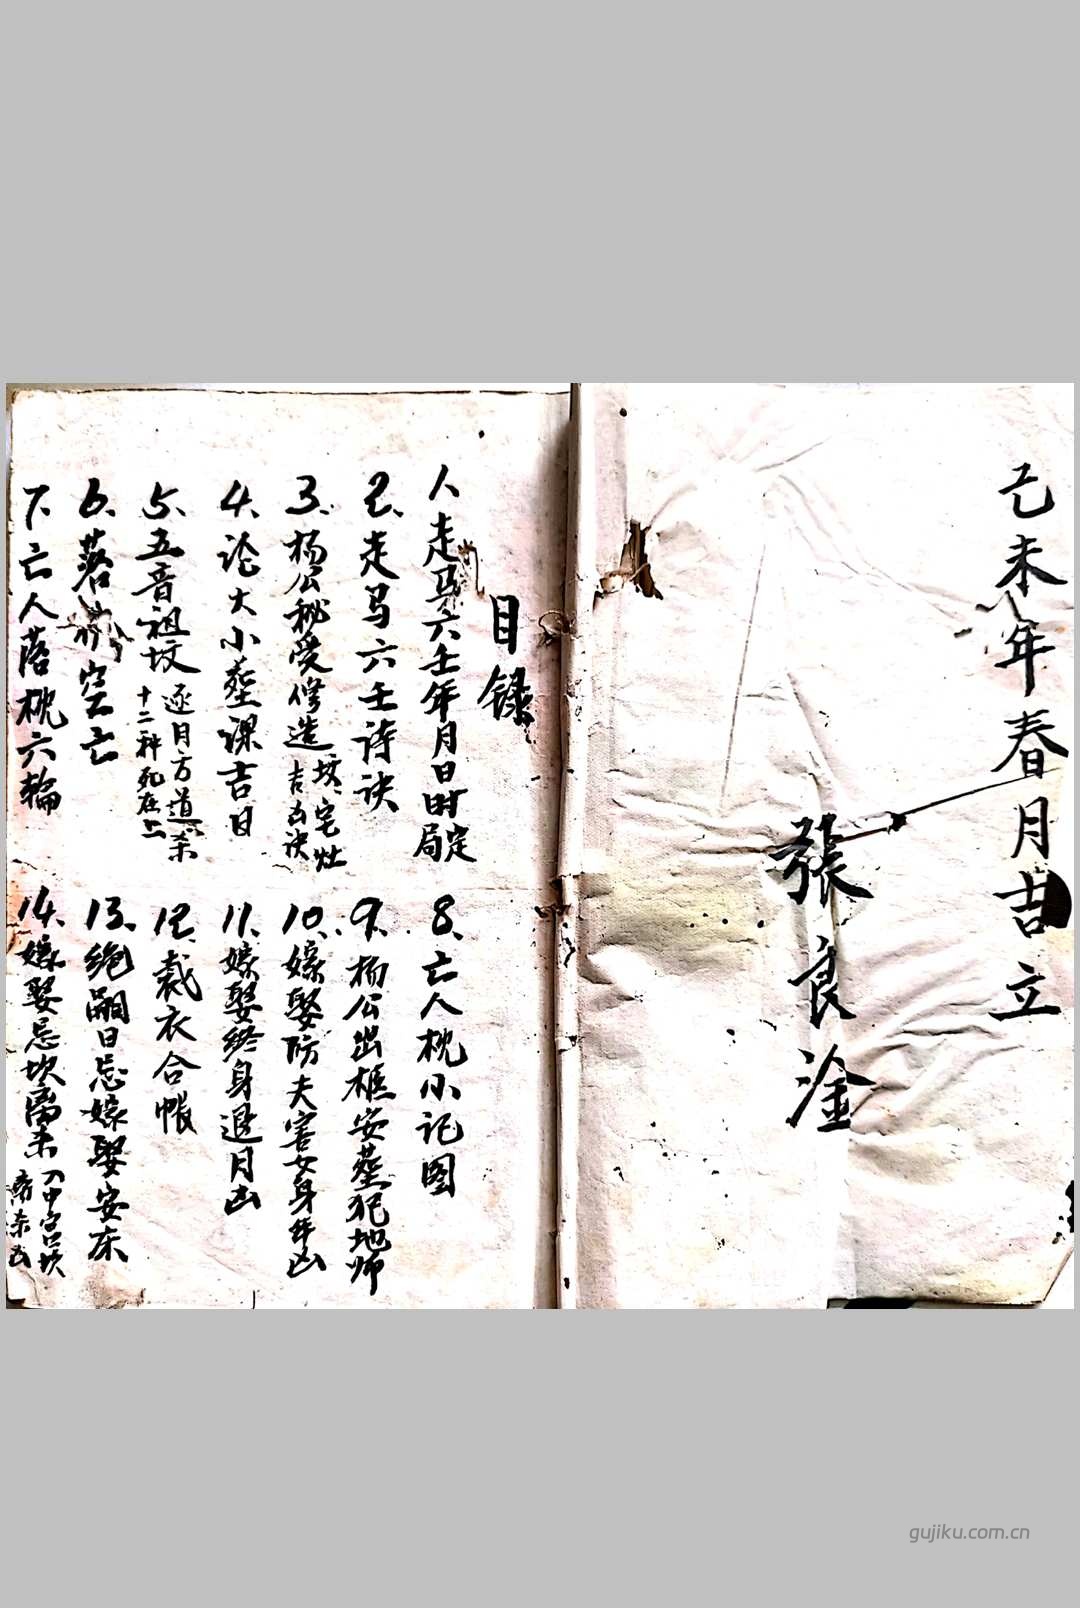 己未年春月吉立
張良淦
目录
1.走马六壬年月日时定局
2.走马六壬诗诀
3.杨公秘受修造坟宅灶吉凶诀
4.论大小塟课吉日
5.五音祖坟逐月方道杀十二种死在上
6.落 空亡
7.亡人落枕六輪
8.亡人枕小记图
9.杨公出樵安塟犯地师
10.嫁娶防夫害女身年凶
11.嫁娶终身退月凶
12.裁衣合帳
13.绝嗣日忌嫁娶安床
14.嫁娶忌坎离杀入中宫坎离杀凶
gujiku.com.cn